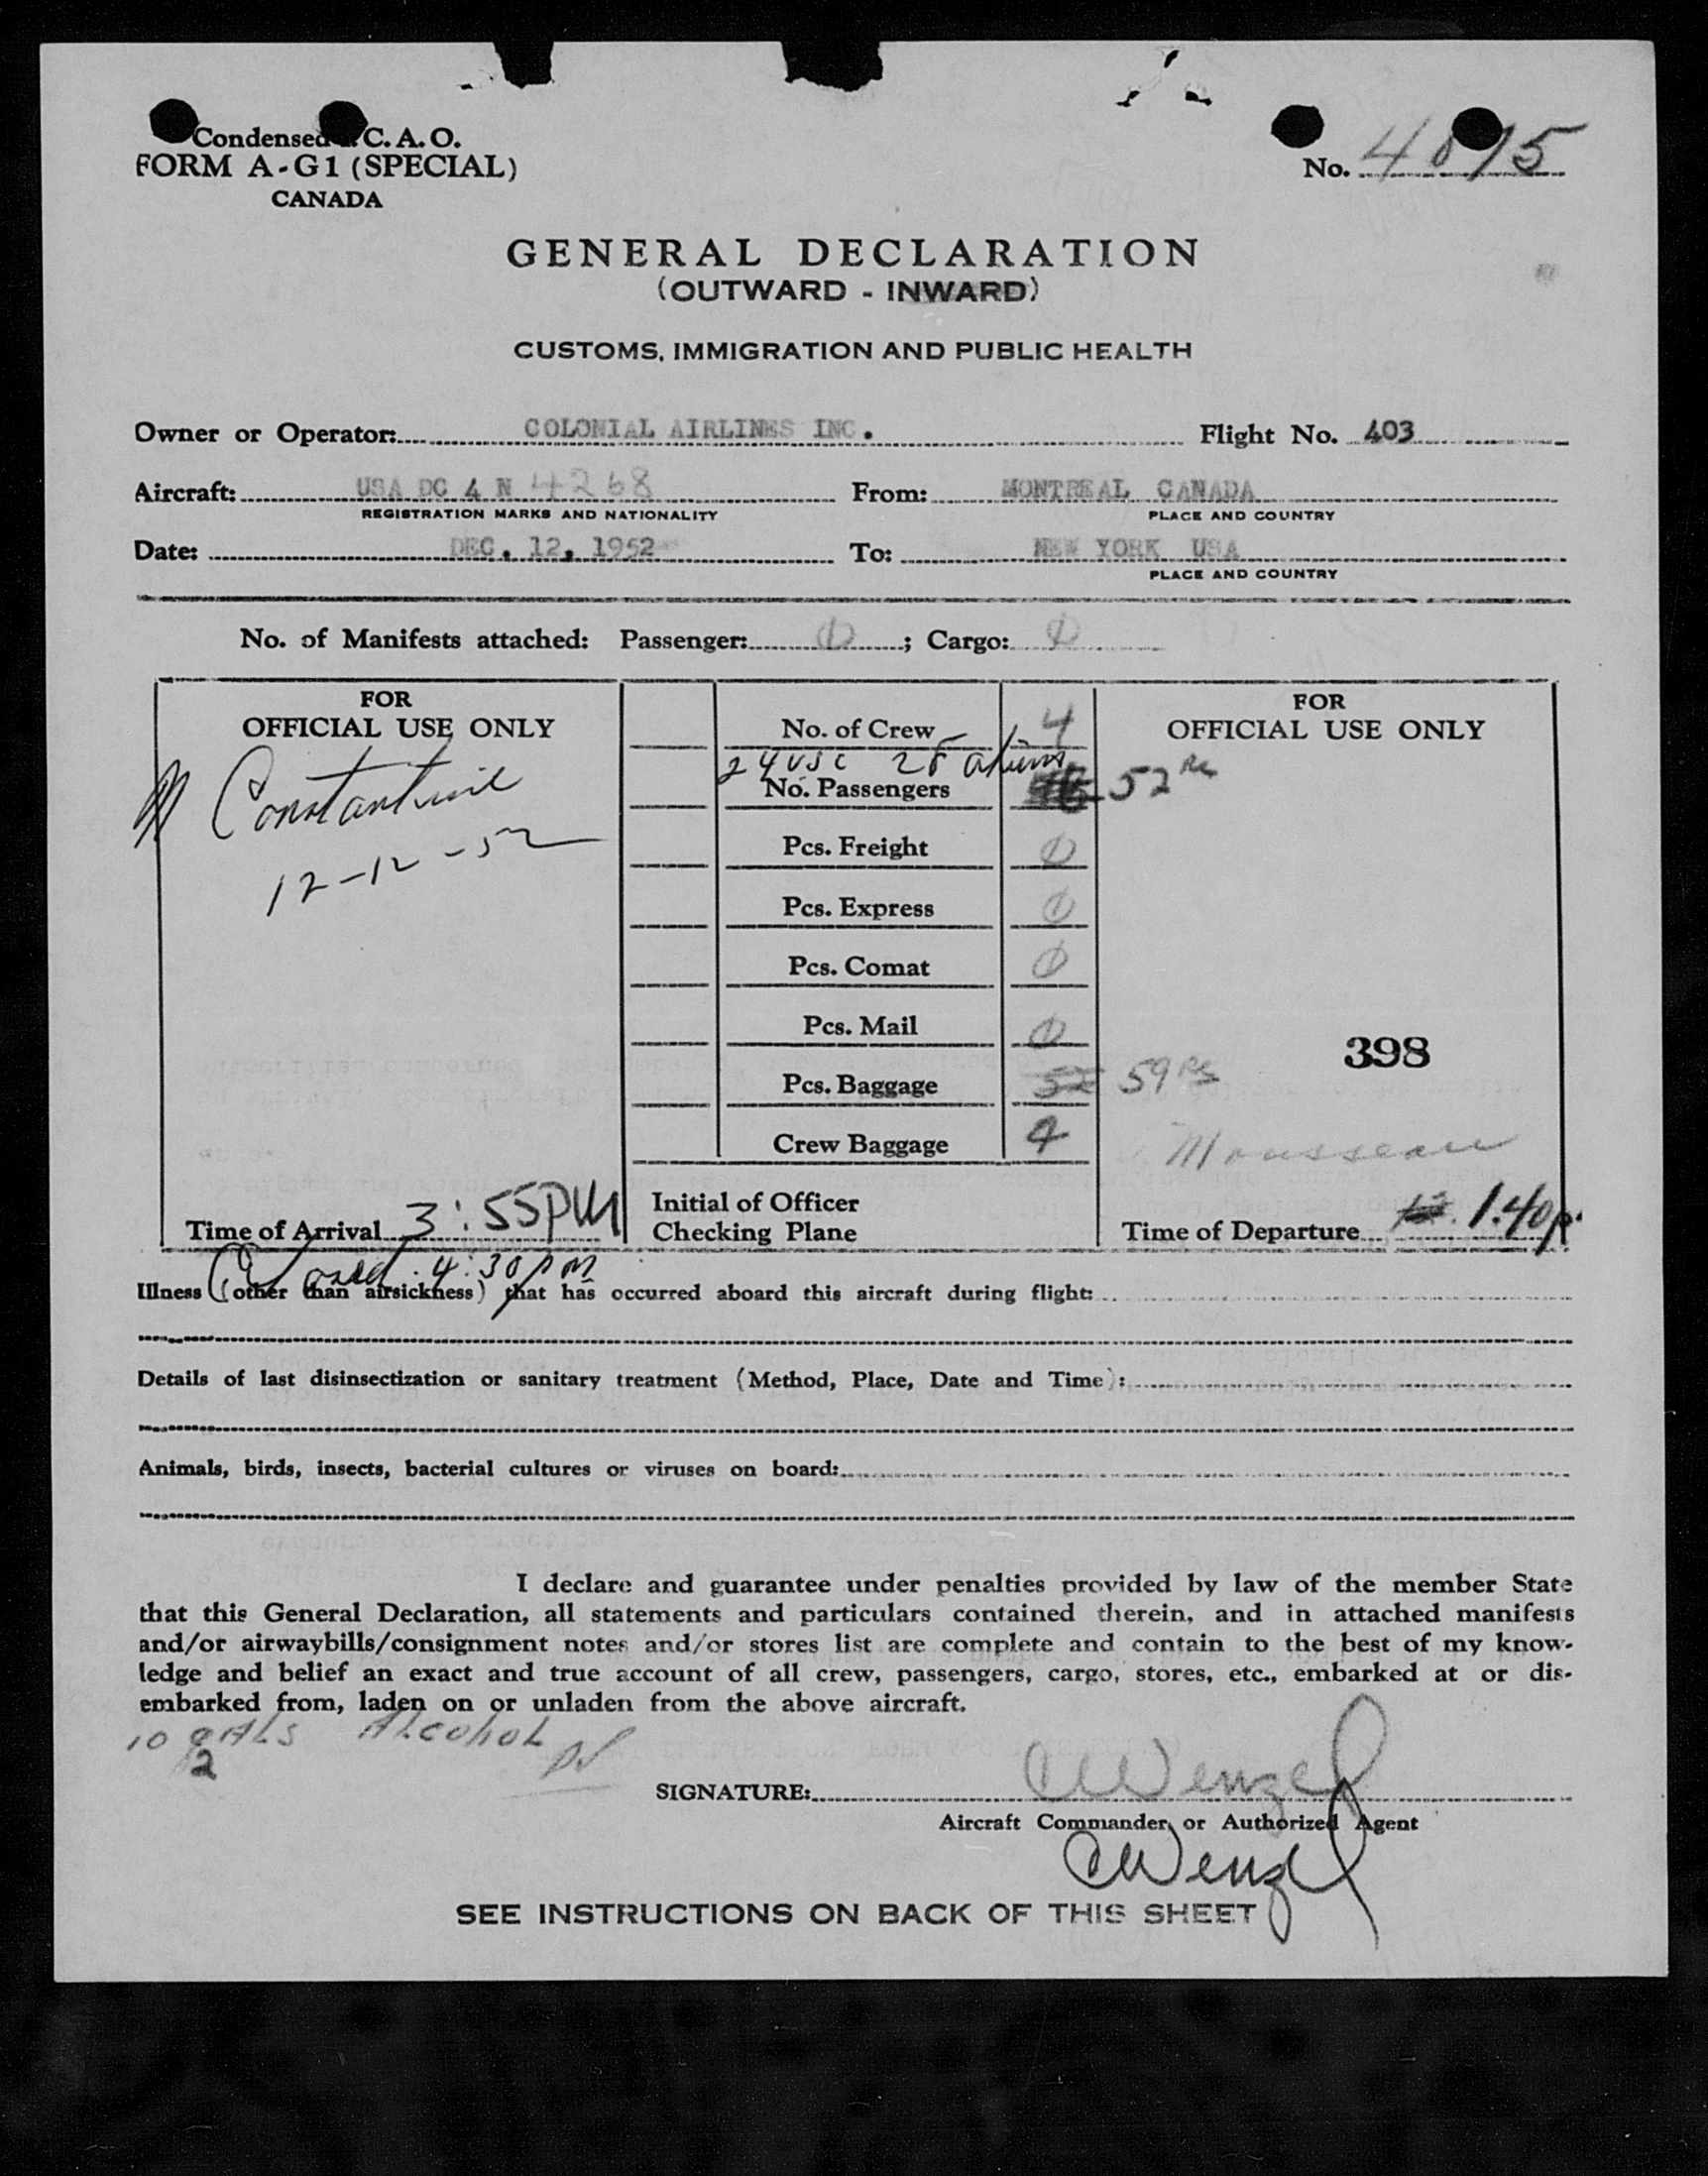 Condensed I.C.A.O.
FORM A-G1 (SPECIAL)
CANADA
No. 4815
GENERAL DECLARATION
(OUTWARD - INWARD)
CUSTOMS, IMMIGRATION AND PUBLIC HEALTH
Owner or Operator: COLONIAL AIRLINES INC. Flight No. 403
Aircraft: USA DC 4 N 4268 From: MONTREAL CANADA
REGISTRATION MARKS AND NATIONALITY PLACE AND COUNTRY
Date: DEC. 12, 1952 To: NEW YORK USA
PLACE AND COUNTRY
No. of Manifests attached: Passenger: 0; Cargo: 0
FOR
OFFICIAL USE ONLY
Constantine
12-12-52
Time of Arrival 3:55PM
No. of Crew 4
24 USC 28 aliens
No. Passengers 52
Pcs. Freight 0
Pcs. Express 0
Pcs. Comat 0
Pcs. Mail 0
Pcs. Baggage 52 59
Crew Baggage 4
Initial of Officer
Checking Plane
FOR
OFFICIAL USE ONLY
398
Mousseau
Time of Departure 1.40p.
Closed 4:30pm
Illness (other than airsickness) that has occurred aboard this aircraft during flight:
Details of last disinsectization or sanitary treatment (Method, Place, Date and Time):
Animals, birds, insects, bacterial cultures or viruses on board:
I declare and guarantee under penalties provided by law of the member State
that this General Declaration, all statements and particulars contained therein, and in attached manifests
and/or airwaybills/consignment notes and/or stores list are complete and contain to the best of my know-
ledge and belief an exact and true account of all crew, passengers, cargo, stores, etc., embarked at or dis-
embarked from, laden on or unladen from the above aircraft.
10 gALs ALcohoL
2
SIGNATURE: CWenzel
Aircraft Commander, or Authorized Agent
CWenzel
SEE INSTRUCTIONS ON BACK OF THIS SHEET